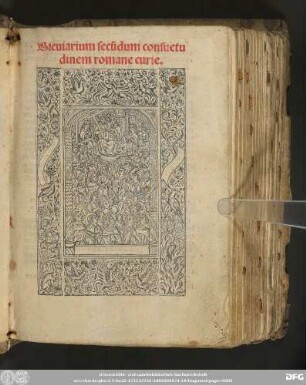 Breuiarium secūdum consuetu
dinem romane curie.
DFG